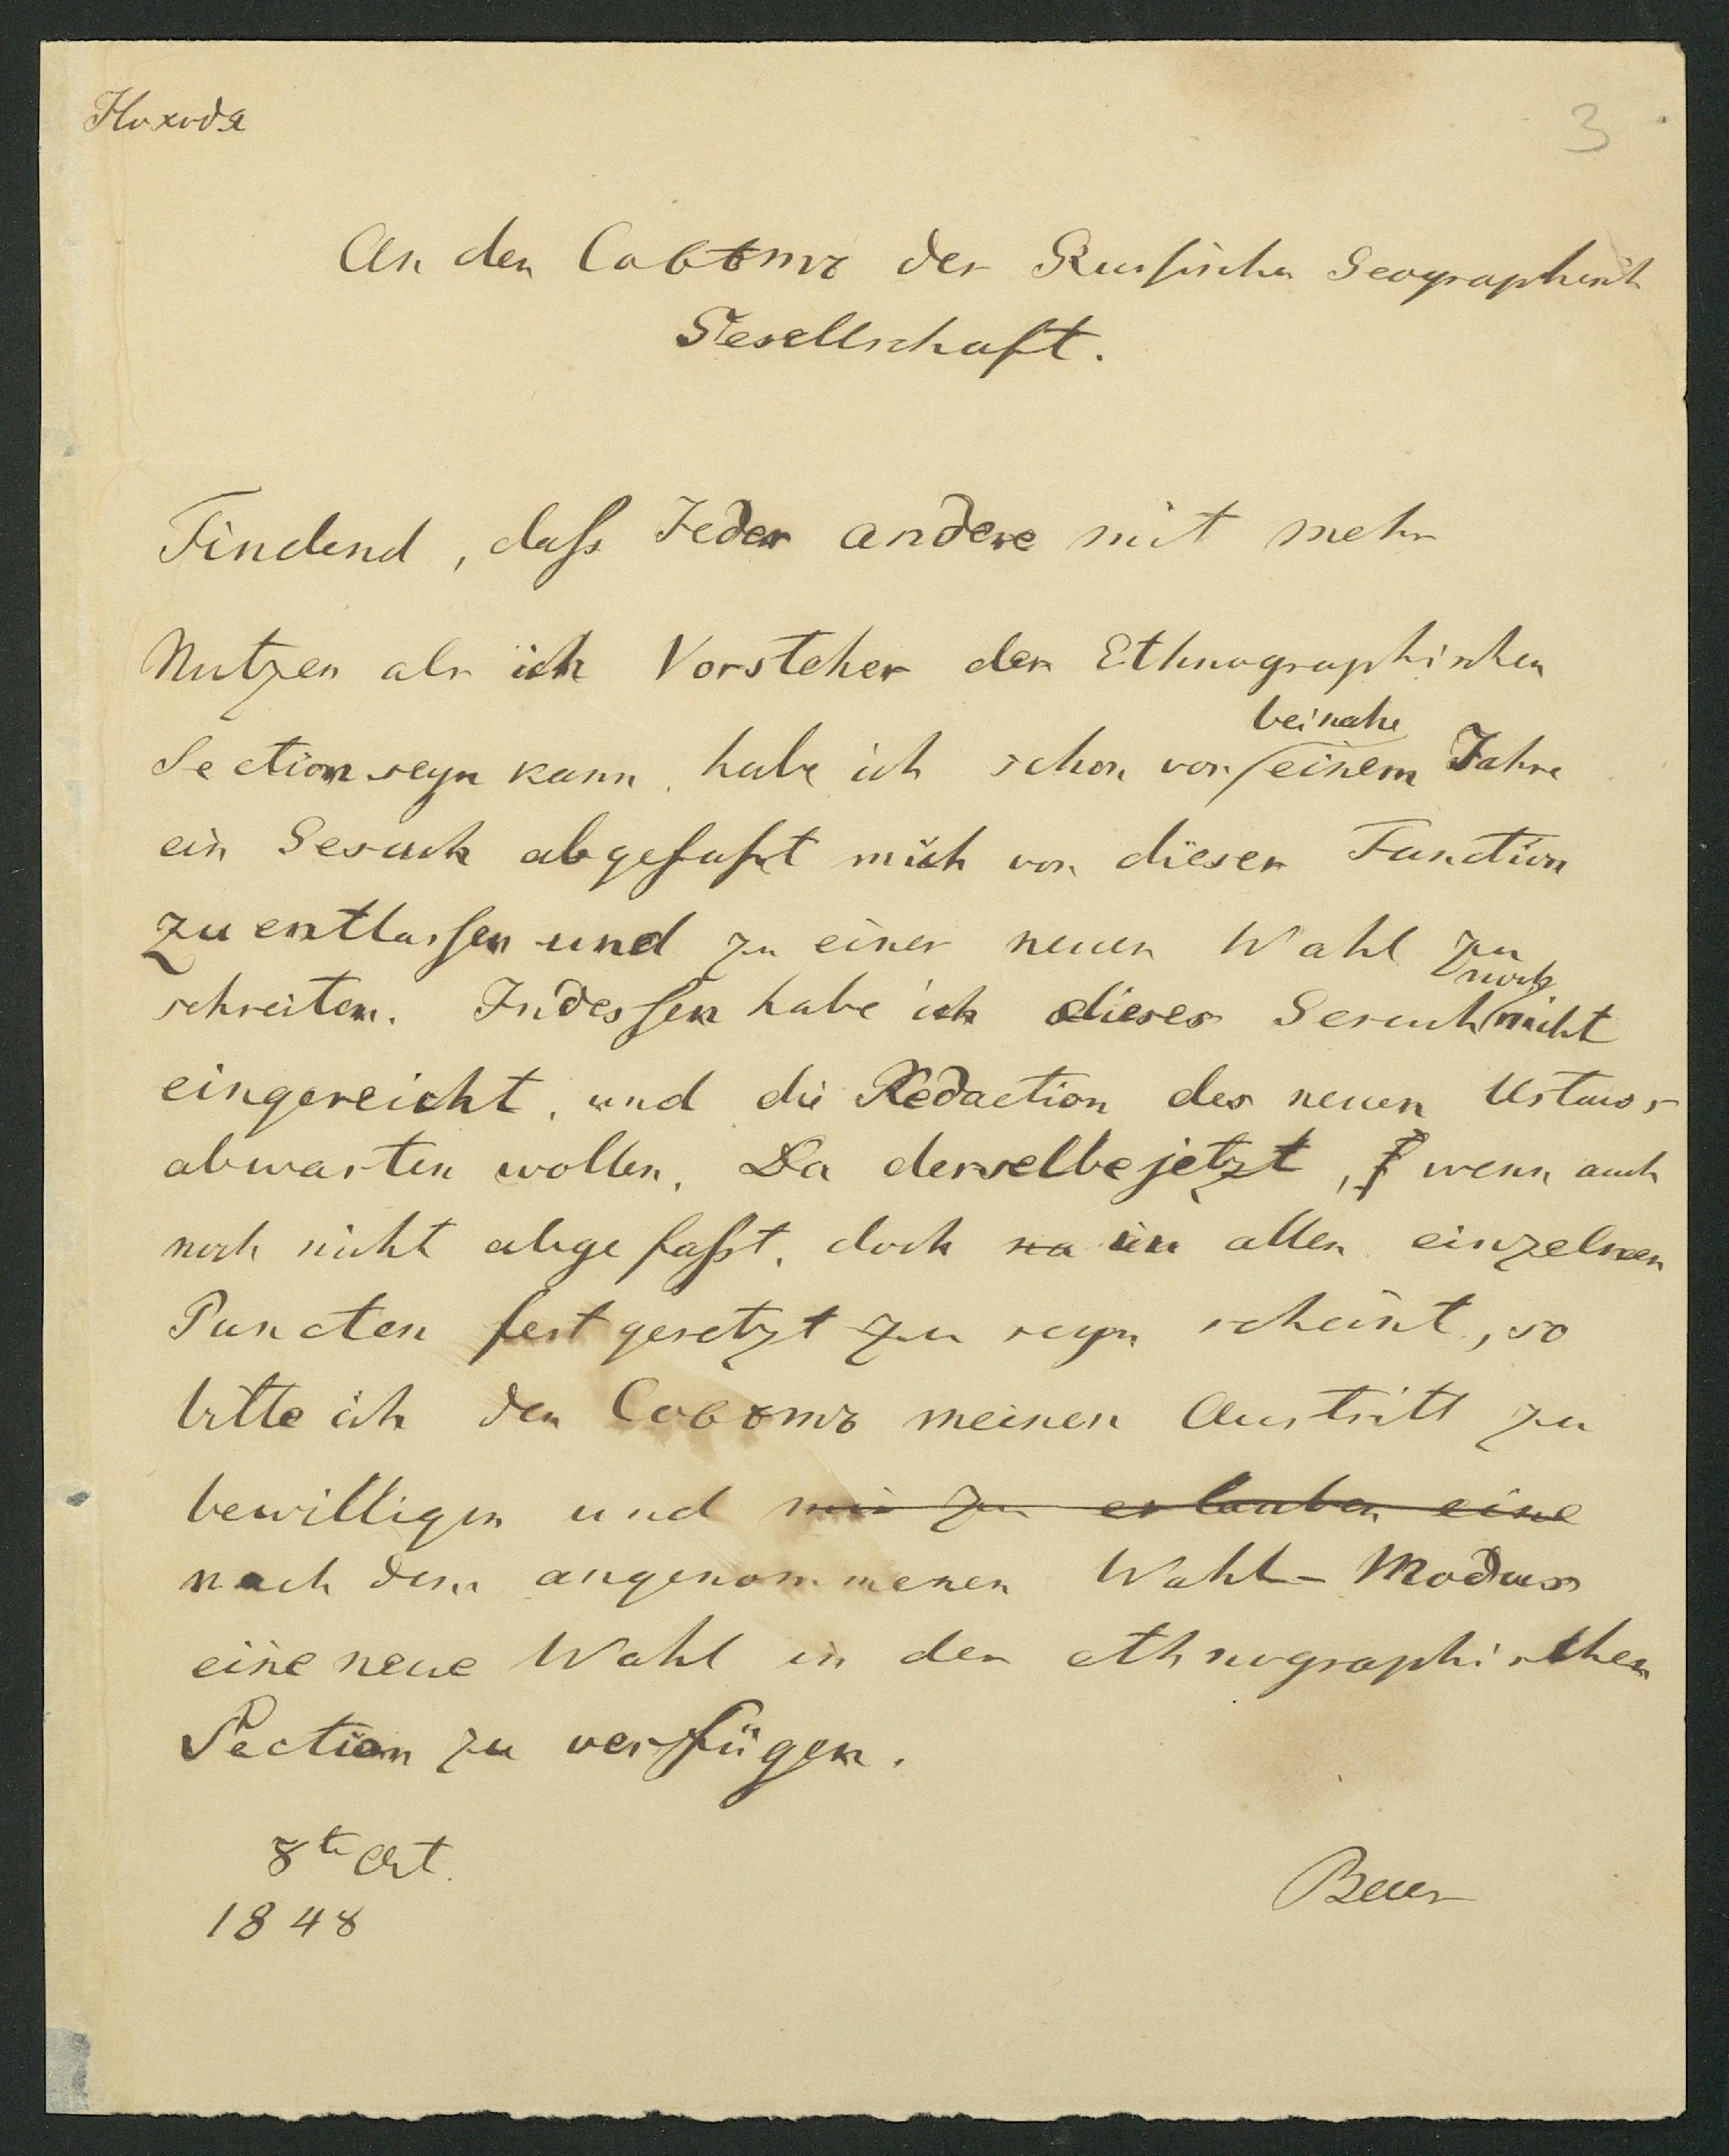 3
An den Совѣтъ der Russischen Geographisch
Gesellschaft.
Findend, dass Jeder andere mit mehr
Nutzen als ich Vorsteher der Ethnographischen
beinahe
Section seyn kann, habe ich schon vor einem Jahre
ein Gesuch abgefasst mich von dieser Function
zu entlassen und zu einer neuen Wahl zu
noch
schreiten. Indessen habe ich dieses Gesuch nicht
eingereicht, und die Redaction des neuen Ustaws
abwarten wollen. Da derselbe jetzt, wenn auch
noch nicht abgefasst, doch na in allen einzelnen
Puncten festgesetzt zu seyn scheint, so
bitte ich den Совѣтъ meinen Austritt zu
bewilligen und mir zu erlauben eine
nach dem angenommenen Wahl-Modus
eine neue Wahl in der ethnographischen
Section zu verfügen.
8te Oct.
1848
Baer